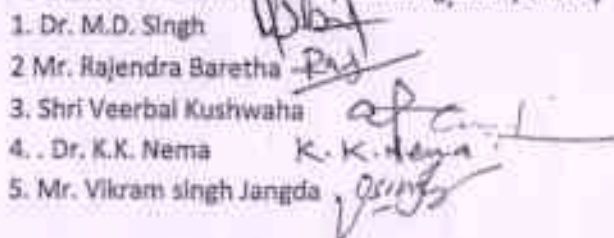 1. Dr. M.D. Singh
2 Mr. Rajendra Baretha Raj
3. Shri Veerbal Kushwaha
4. . Dr. K.K. Nema K. K. Nema
5. Mr. Vikram singh Jangda